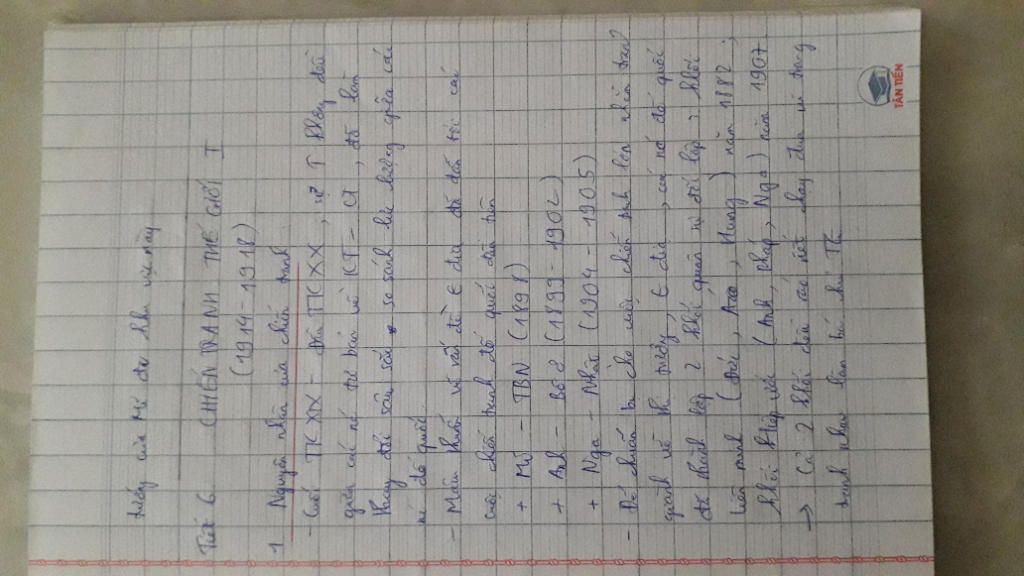 trướng của Mĩ ở khu vực này
Tiết 6. CHIẾN TRANH THẾ GIỚI I
(1914-1918)
1. Nguyên nhân của chiến tranh
- Cuối TK XIX - đầu TK XX, sự T không đều
giữa các nc tư bản về KT - CT, đã làm
thay đổi sâu sắc so sánh lực lượng giữa các
nc đế quốc.
- Mâu thuẫn về vấn đề € địa đã dẫn tới các
cuộc chiến tranh đế quốc đầu tiên
+ Mĩ - TBN (1898)
+ Anh - Bô ơ (1899-1902)
+ Nga - Nhật (1904-1905)
- Để chuẩn bị cho cuộc chiến tranh lớn nhằm tranh
giành về thị trường, € địa, các nc đế quốc
đã thành lập 2 khối quân sự đối lập: khối
liên minh (Đức, Áo, Hung) năm 1882;
khối hiệp ước (Anh, Pháp, Nga) năm 1907.
→ Cả 2 khối đều ráo riết chạy đua vũ trang
tranh nhau làm bá chủ TG
TÂN TIẾN